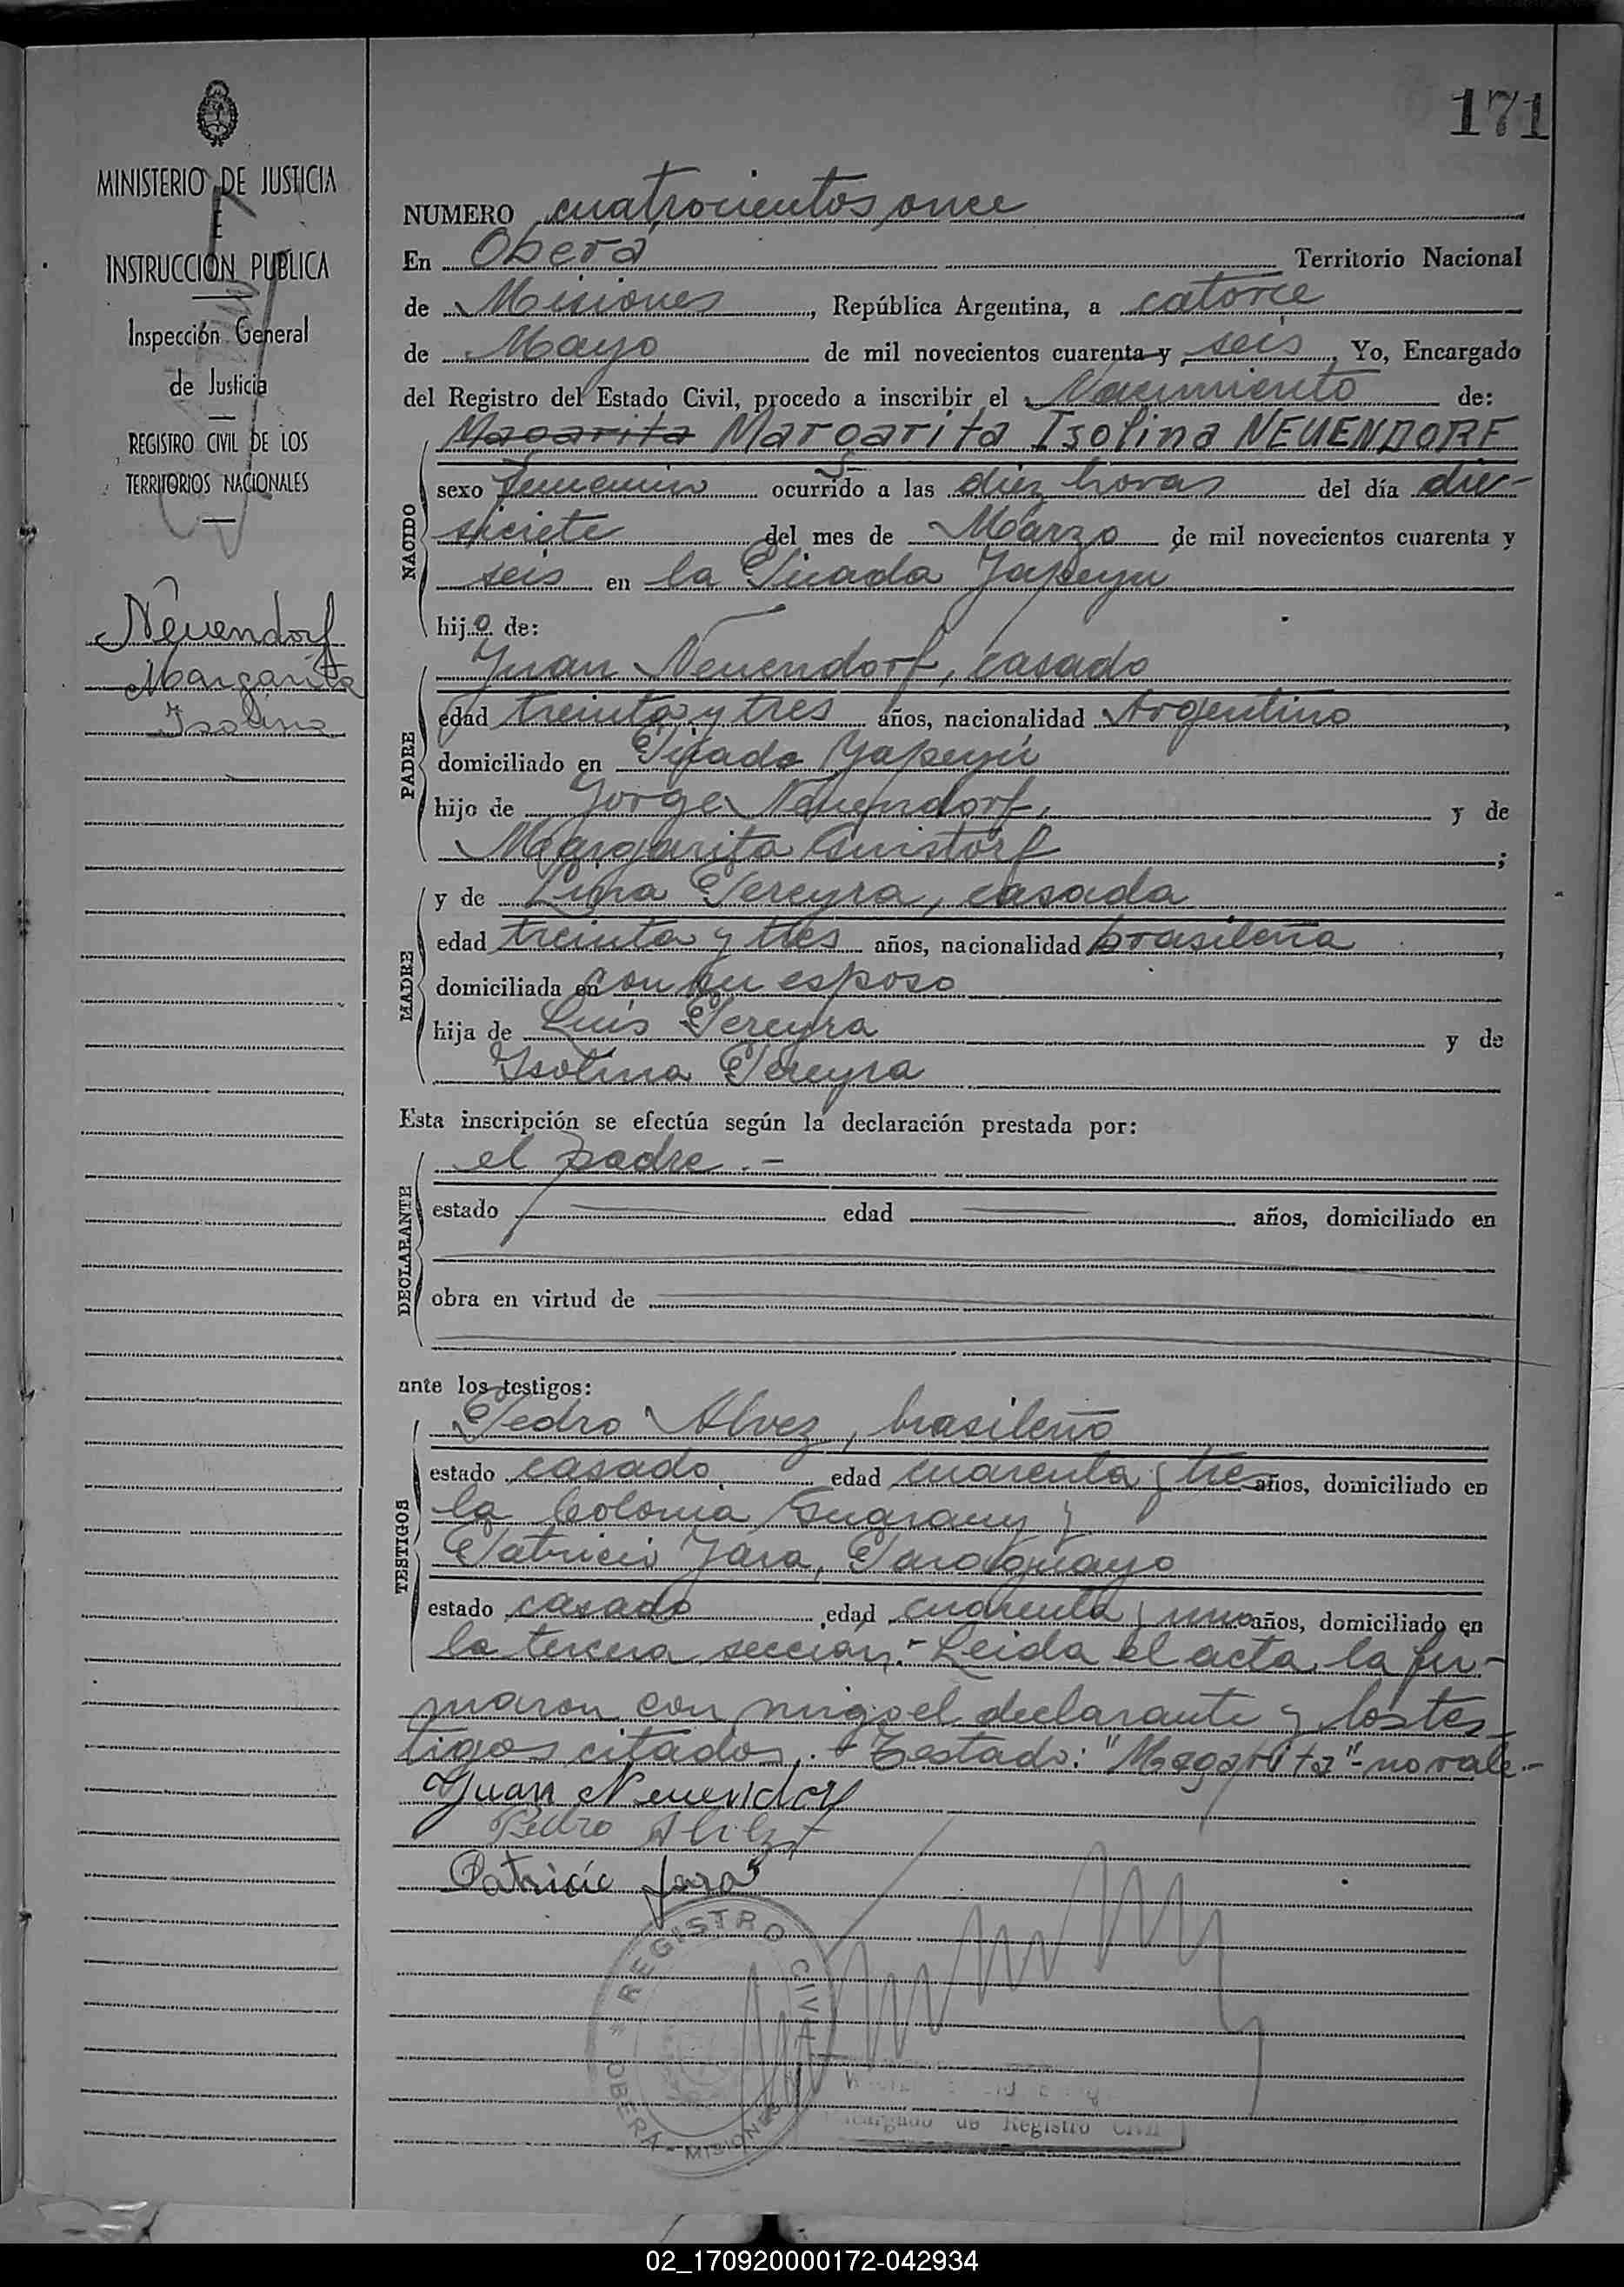 171
MINISTERIO DE JUSTICIA
E
INSTRUCCIÓN PUBLICA
Inspección General
de Justicia
REGISTRO CIVIL DE LOS
TERRITORIOS NACIONALES
Neuendorf
Margarita
Isolina
NUMERO cuatrocientos once
En Oberá Territorio Nacional
de Misiones, República Argentina, a catorce
de Mayo de mil novecientos cuarenta y seis, Yo, Encargado
del Registro del Estado Civil, procedo a inscribir el Nacimiento de:
Magarita Margarita Isolina NEUENDORF
NACIDO
sexo femenino ocurrido a las diez horas del día die-
siciete del mes de Marzo de mil novecientos cuarenta y
seis en la Picada Yapeyu
hijo de:
PADRE
Juan Neuendorf, casado
edad treinta y tres años, nacionalidad Argentino,
domiciliado en Picada Yapeyú
hijo de Jorge Neuendorf, y de
Margarita ;
MADRE
y de Lina Pereyra, casada
edad treinta y tres años, nacionalidad brasileña,
domiciliada en con su esposo
hija de Luis Pereyra y de
Isolina Pereyra
Esta inscripción se efectúa según la declaración prestada por:
DECLARANTE
el padre.-
estado edad años, domiciliado en
obra en virtud de
ante los testigos:
TESTIGOS
Pedro Alvez, brasileño
estado casado edad cuarenta y tres años, domiciliado en
la Colonia Guarany y
Patricio Jara, Paraguayo
estado casado edad cuarenta y uno años, domiciliado en
la tercera sección.- Leida el acta la fir-
maron con migo el declarante y los tes-
tigos citados.- Testado: "Magarita"-no vale.-
Juan Neuendorf
Pedro
Patricio Jara
REGISTRO CIVIL
OBERA - MISIONES
Encargado de Registro Civil
02_170920000172-042934